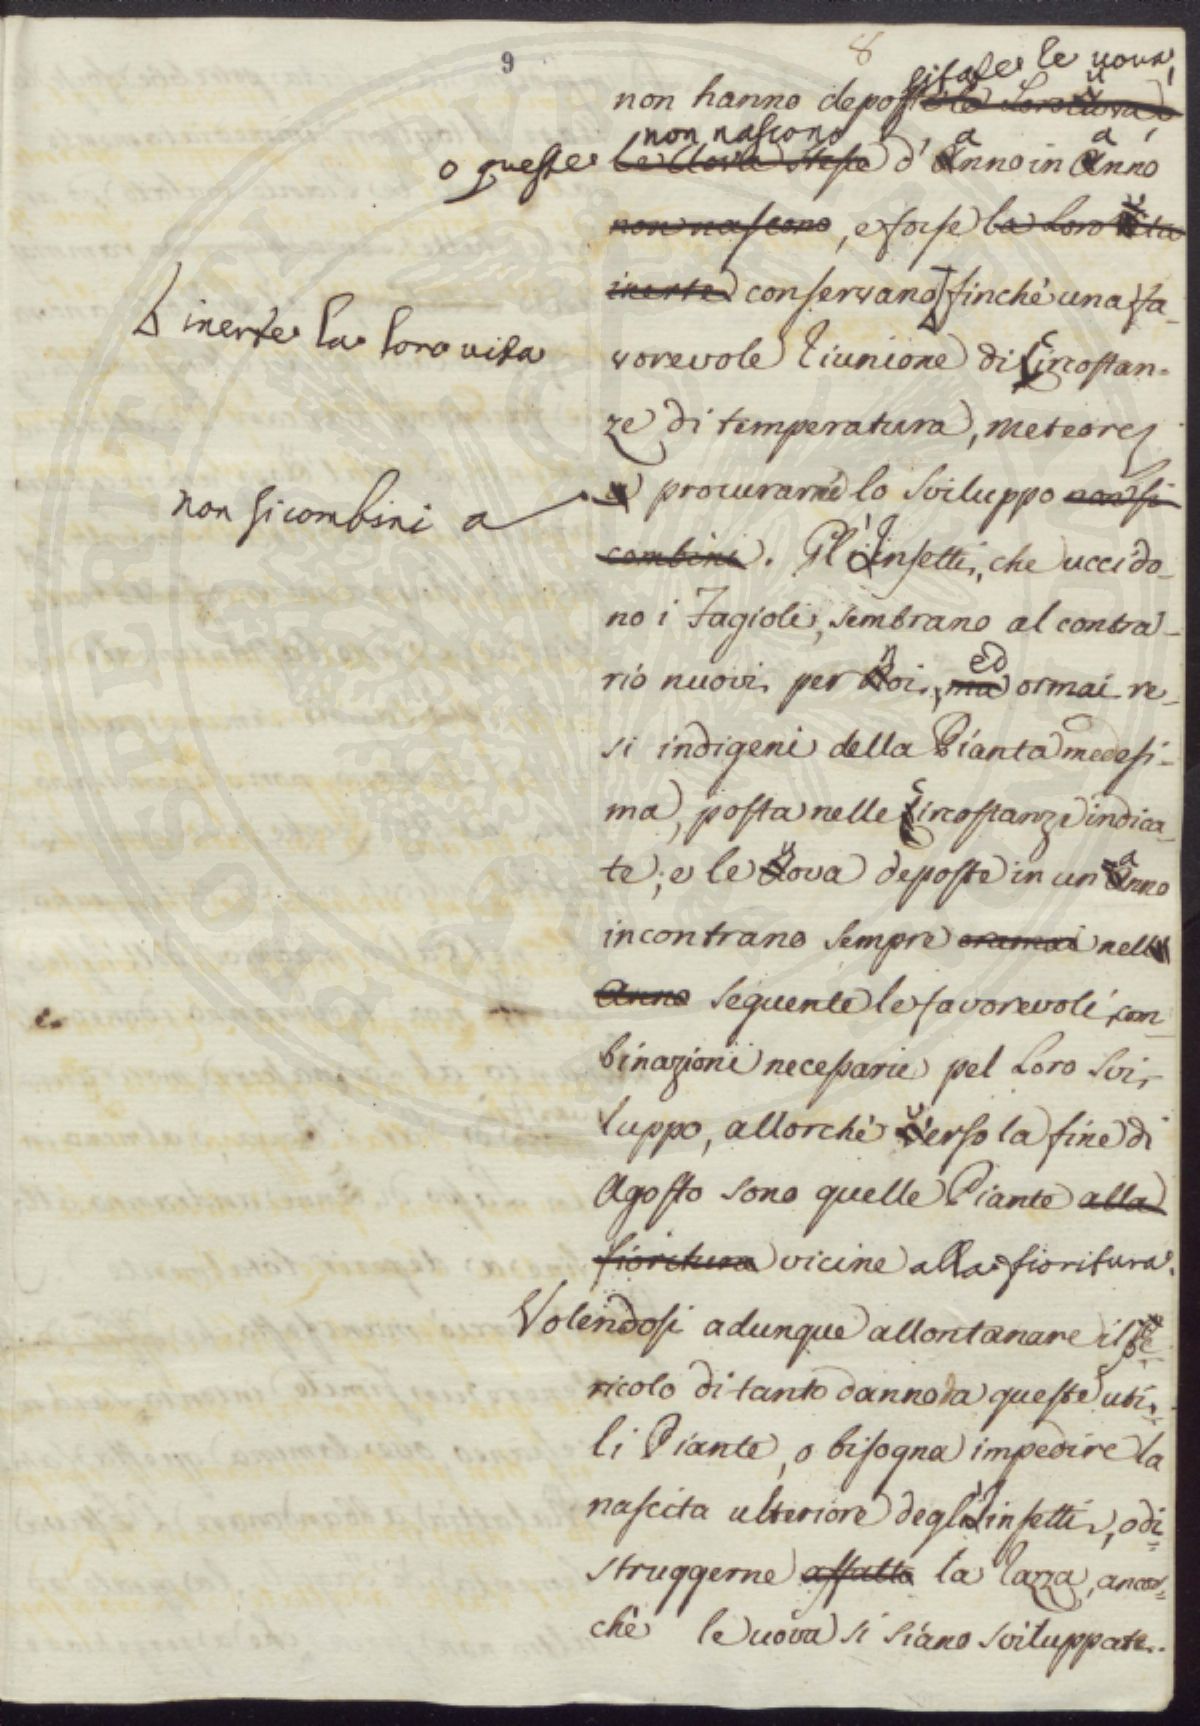 9
8
sitate le uova,
non hanno deposte le Loro Uova, o
non nascono
o queste le Uova stesse d'anno in anno
non nascono, e forse la Loro vita
inerte conservano finchè una fa-
inerte la loro vita
vorevole riunione di circostan-
ze di temperatura, meteore,
non si combini a
a procurarne lo sviluppo non si
combini. Gl'Insetti, che uccido-
no i Fagioli, sembrano al contra-
rio nuovi per noi, ma ed ormai re-
si indigeni della Pianta medesi-
ma, posta nelle circostanze indica-
te; e le uova deposte in un anno
incontrano sempre oramai nell
Anno seguente le favorevoli com
binazioni necessarie pel Loro svi-
luppo, allorchè verso la fine di
Agosto sono quelle Piante alla
fioritura vicine alla fioritura.
Volendosi adunque allontanare il pe-
ricolo di tanto danno da queste uti-
li Piante, o bisogna impedire la
nascita ulteriore degl'insetti, o di-
struggerne affatto la razza, ancor-
chè le uova si siano sviluppate.